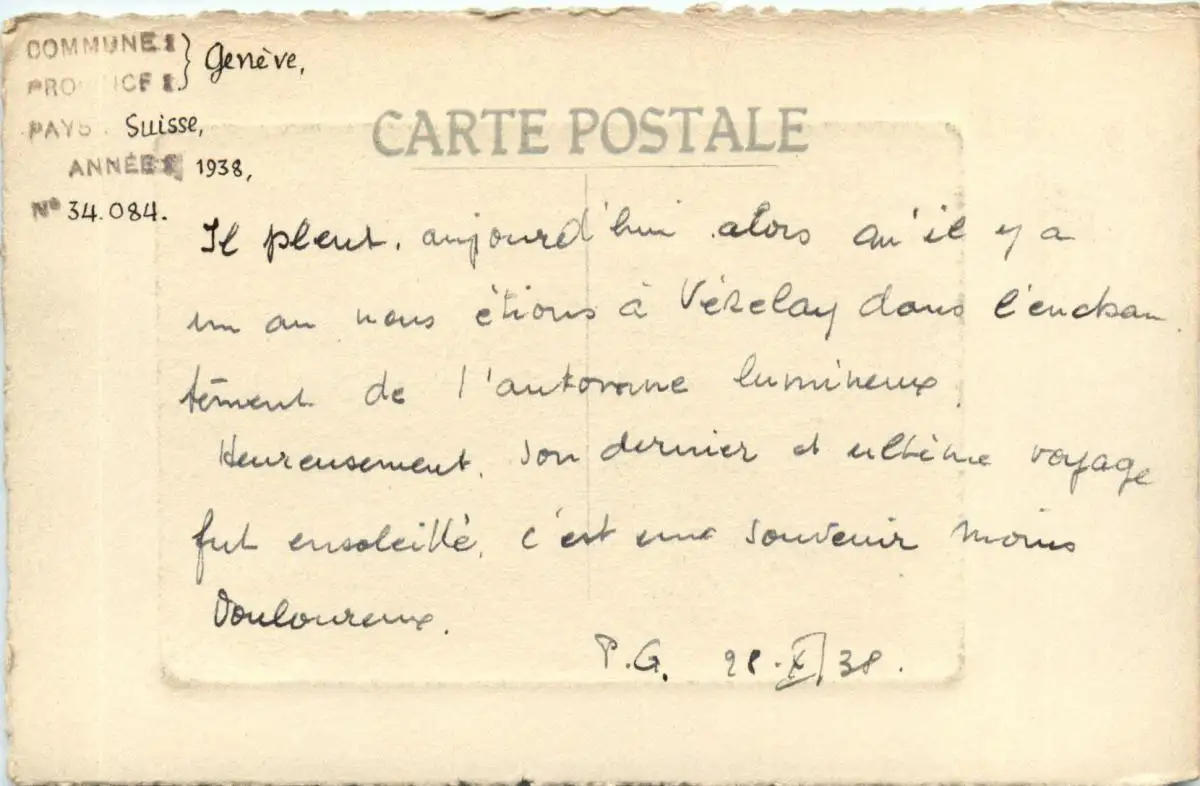 COMMUNE :
PROVINCE : } Genève,
PAYS : Suisse,
ANNÉE : 1938,
N° 34.084.
CARTE POSTALE
Il pleut, aujourd'hui alors qu'il y a
un an nous étions à Vézelay dans l'enchan
tement de l'automne lumineux.
Heureusement, son dernier et ultime voyage
fut ensoleillé, c'est une souvenir moins
douloureux.
P.G. 28.X.38.